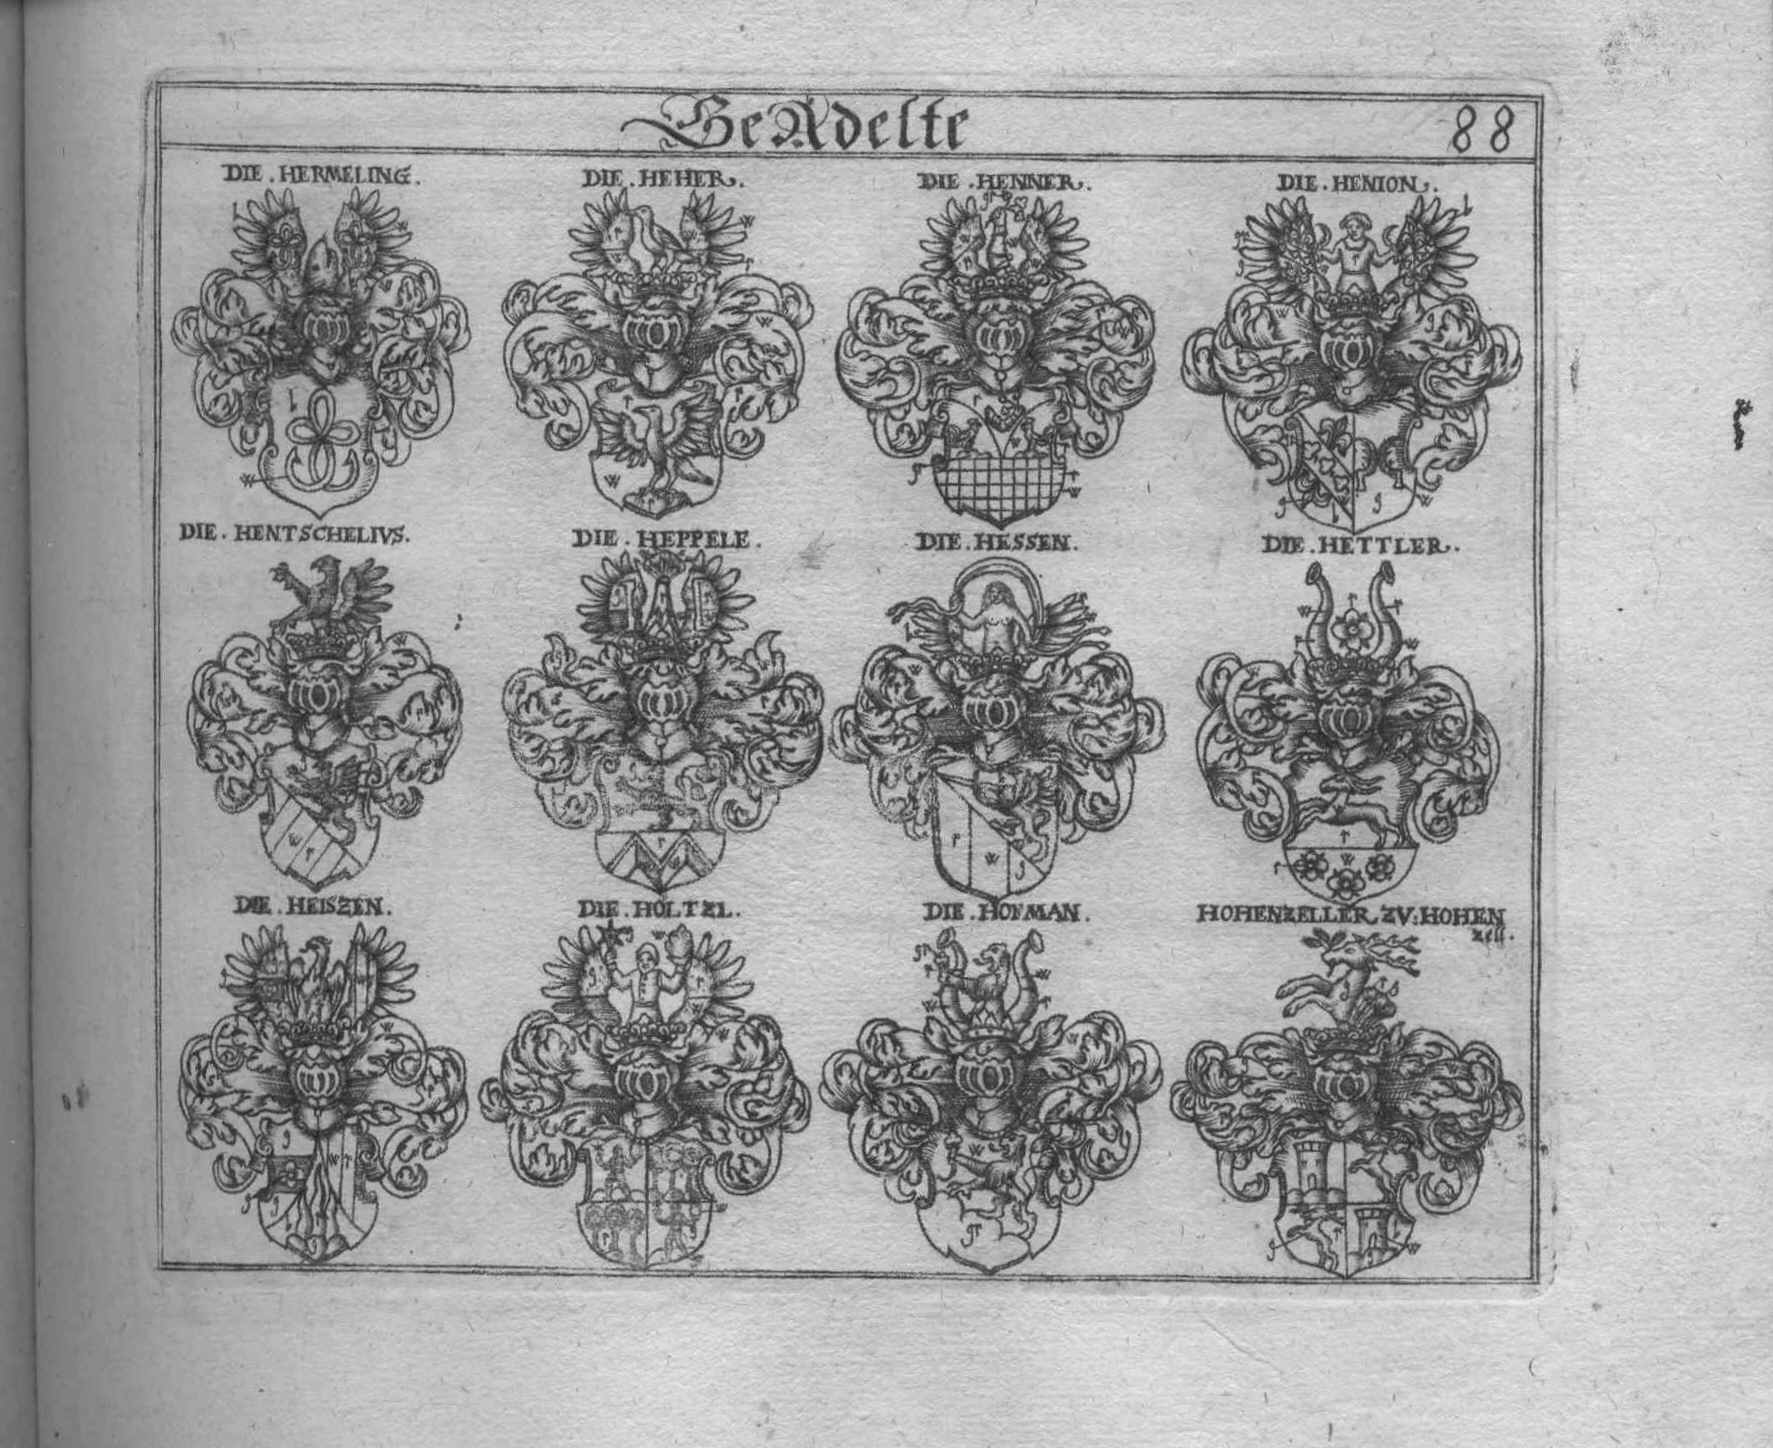 GeAdelte 88
DIE . HERMELING . DIE . HEHER . DIE . HENNER . DIE . HENION .
DIE . HENTSCHELIVS . DIE . HEPPELE . DIE . HESSEN . DIE . HETTLER .
DIE . HEISZEN . DIE . HOLTZL . DIE . HOFMAN . HOHENZELLER ZV : HOHEN
zell .